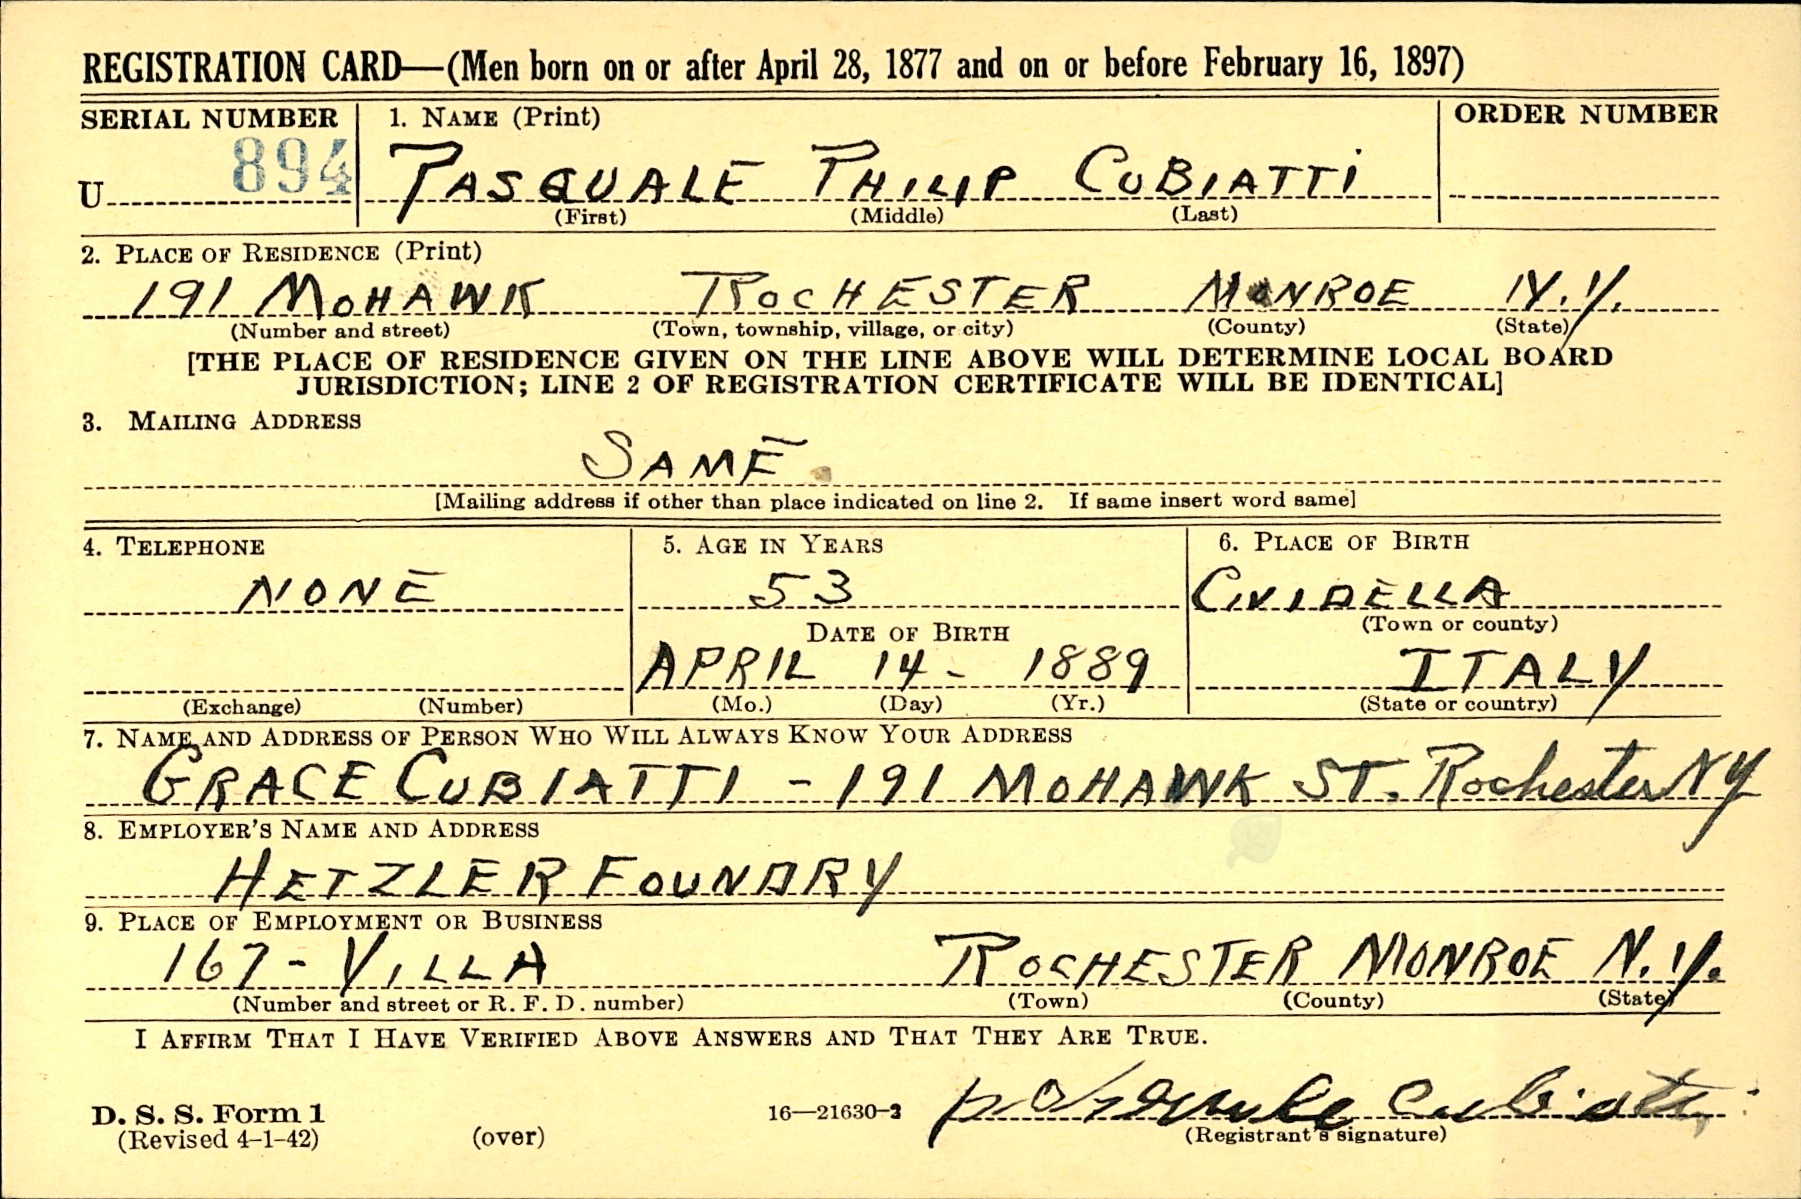 REGISTRATION CARD—(Men born on or after April 28, 1877 and on or before February 16, 1897)
SERIAL NUMBER 1. NAME (Print) ORDER NUMBER
U 894 PASQUALE PHILIP CUBIATTI
(First) (Middle) (Last)
2. PLACE OF RESIDENCE (Print)
191 MOHAWK ROCHESTER MONROE N.Y.
(Number and street) (Town, township, village, or city) (County) (State)
[THE PLACE OF RESIDENCE GIVEN ON THE LINE ABOVE WILL DETERMINE LOCAL BOARD
JURISDICTION; LINE 2 OF REGISTRATION CERTIFICATE WILL BE IDENTICAL]
3. MAILING ADDRESS
SAME
[Mailing address if other than place indicated on line 2. If same insert word same]
4. TELEPHONE 5. AGE IN YEARS 6. PLACE OF BIRTH
NONE 53 CIVIDELLA
DATE OF BIRTH (Town or county)
APRIL 14 - 1889 ITALY
(Exchange) (Number) (Mo.) (Day) (Yr.) (State or country)
7. NAME AND ADDRESS OF PERSON WHO WILL ALWAYS KNOW YOUR ADDRESS
GRACE CUBIATTI - 191 MOHAWK ST. Rochester NY
8. EMPLOYER'S NAME AND ADDRESS
HETZLER FOUNDRY
9. PLACE OF EMPLOYMENT OR BUSINESS
167 - VILLA ROCHESTER MONROE N.Y.
(Number and street or R. F. D. number) (Town) (County) (State)
I AFFIRM THAT I HAVE VERIFIED ABOVE ANSWERS AND THAT THEY ARE TRUE.
D. S. S. Form 1 16—21630-2 pasquale Cubiatti
(Revised 4-1-42) (over) (Registrant's signature)